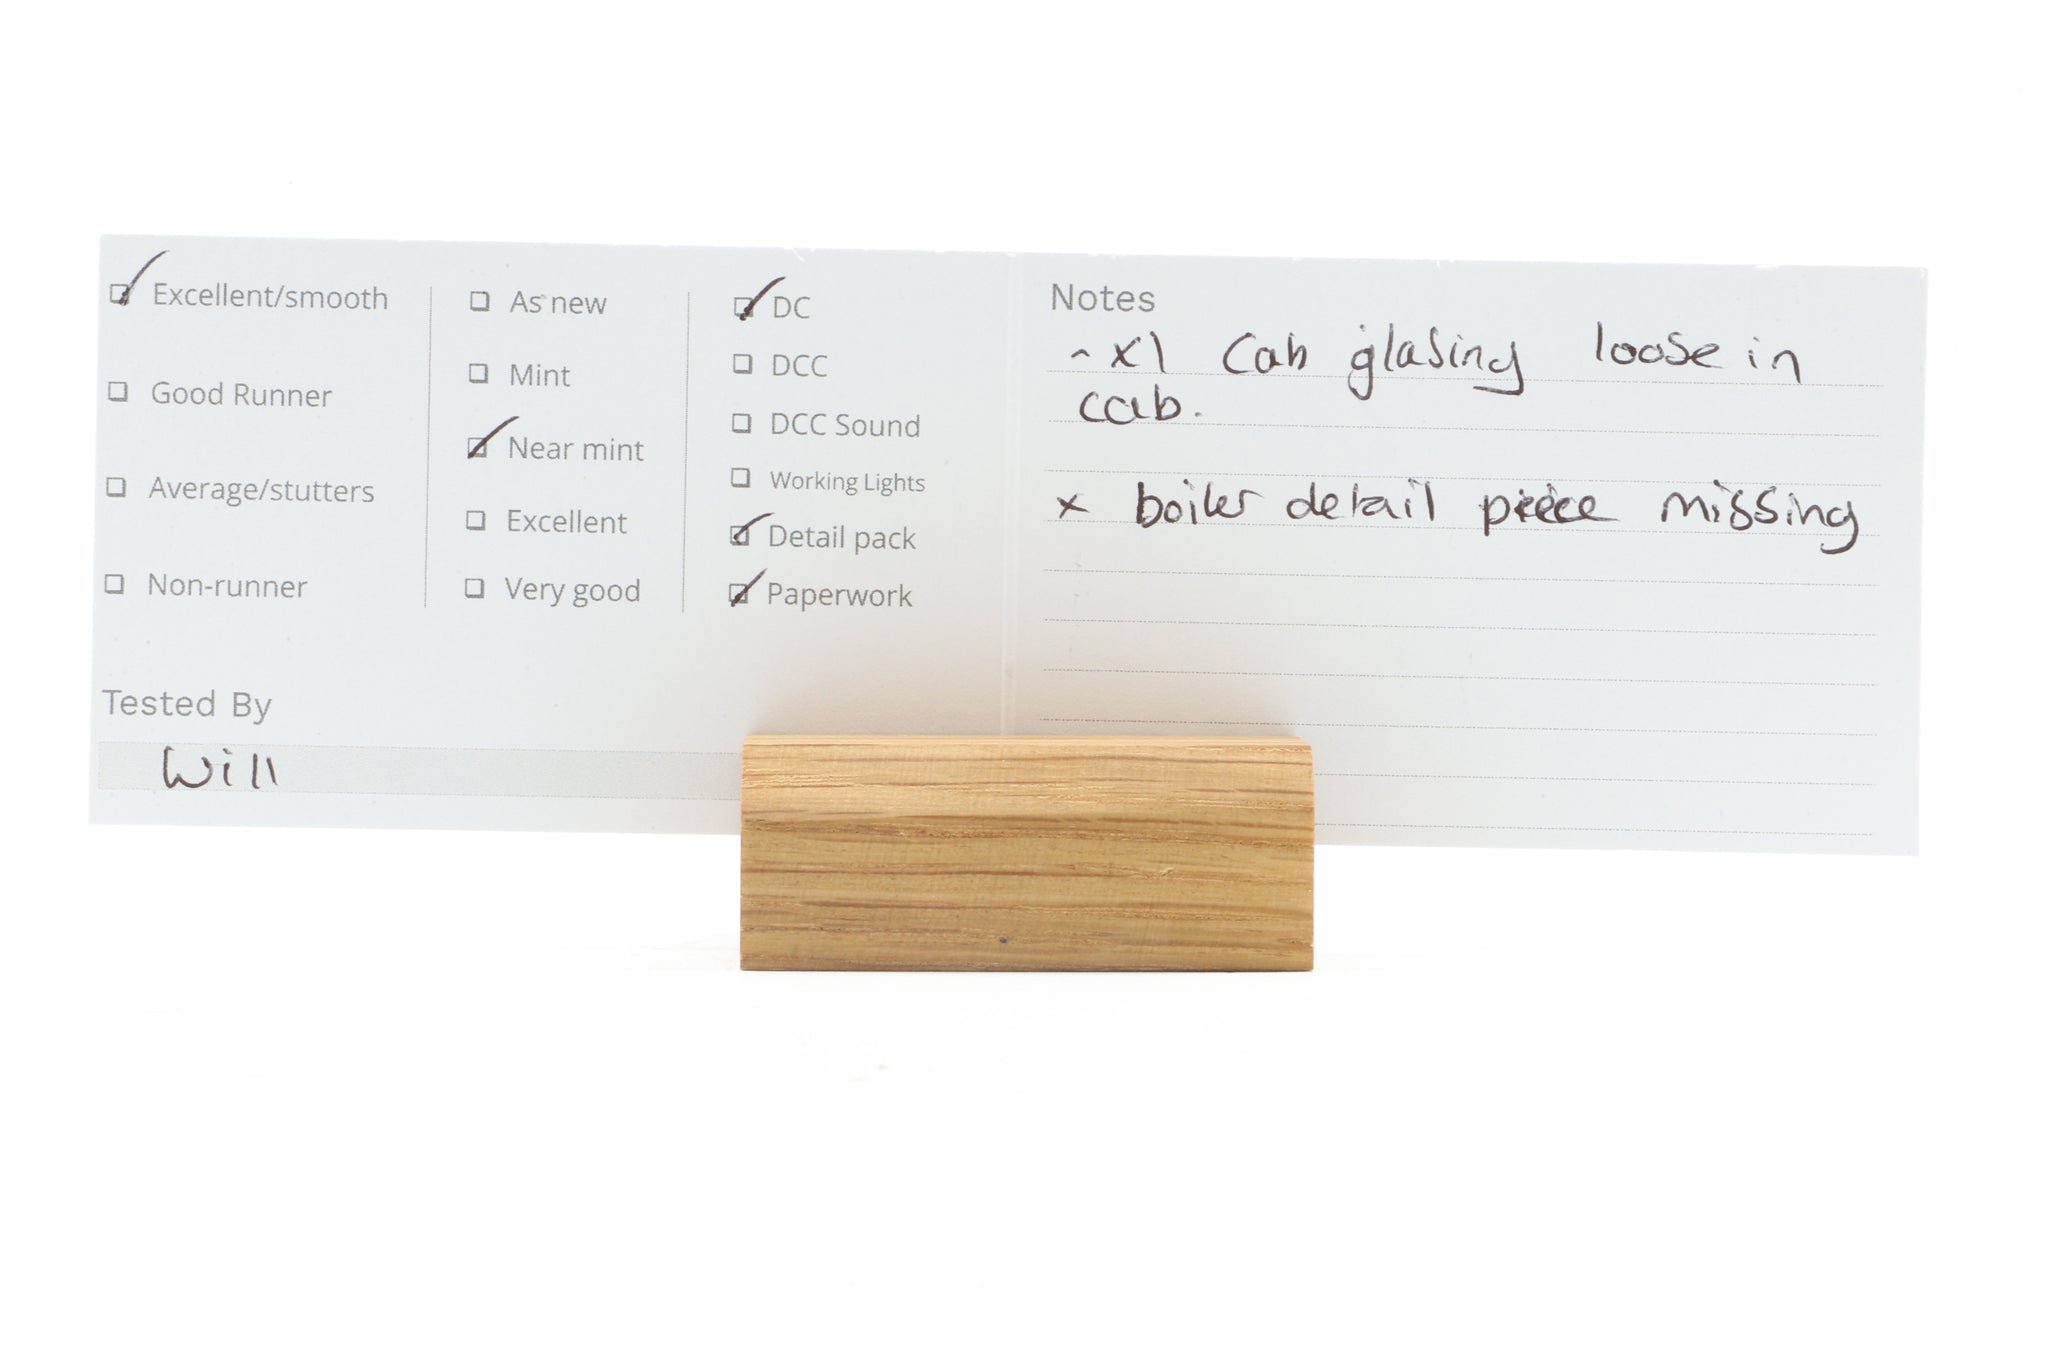 Excellent/smooth
Good Runner
Average/stutters
Non-runner
As new
Mint
Near mint
Excellent
Very good
DC
DCC
DCC Sound
Working Lights
Detail pack
Paperwork
Tested By
Will
Notes
- x1 Cab glasing loose in
cab.
x boiler detail pieece missing